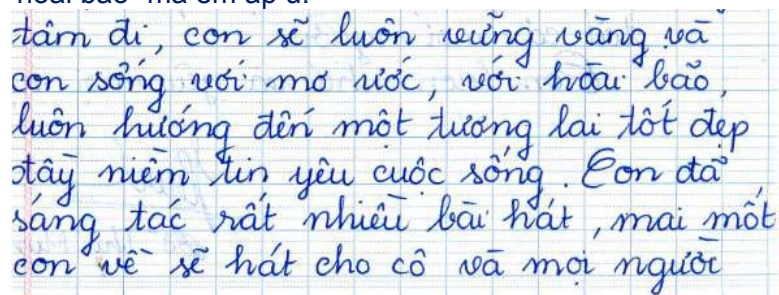 hoài bão" mà em ấp ủ.
tâm đi, con sẽ luôn vững vàng và
con sống với mơ ước, với hoài bão,
luôn hướng đến một tương lai tốt đẹp
đầy niềm tin yêu cuộc sống. Con đã
sáng tác rất nhiều bài hát, mai mốt
con về sẽ hát cho cô và mọi người